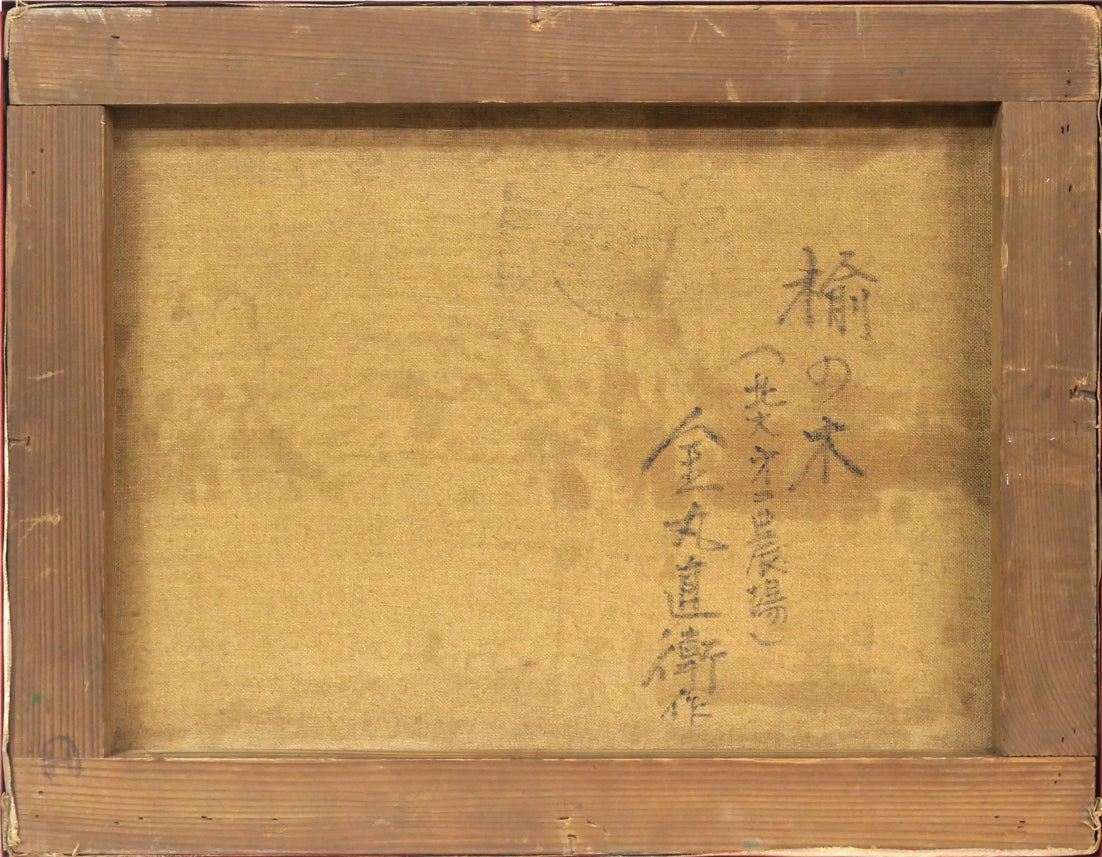 楡の木
（北大才二農場）
金丸直衛作